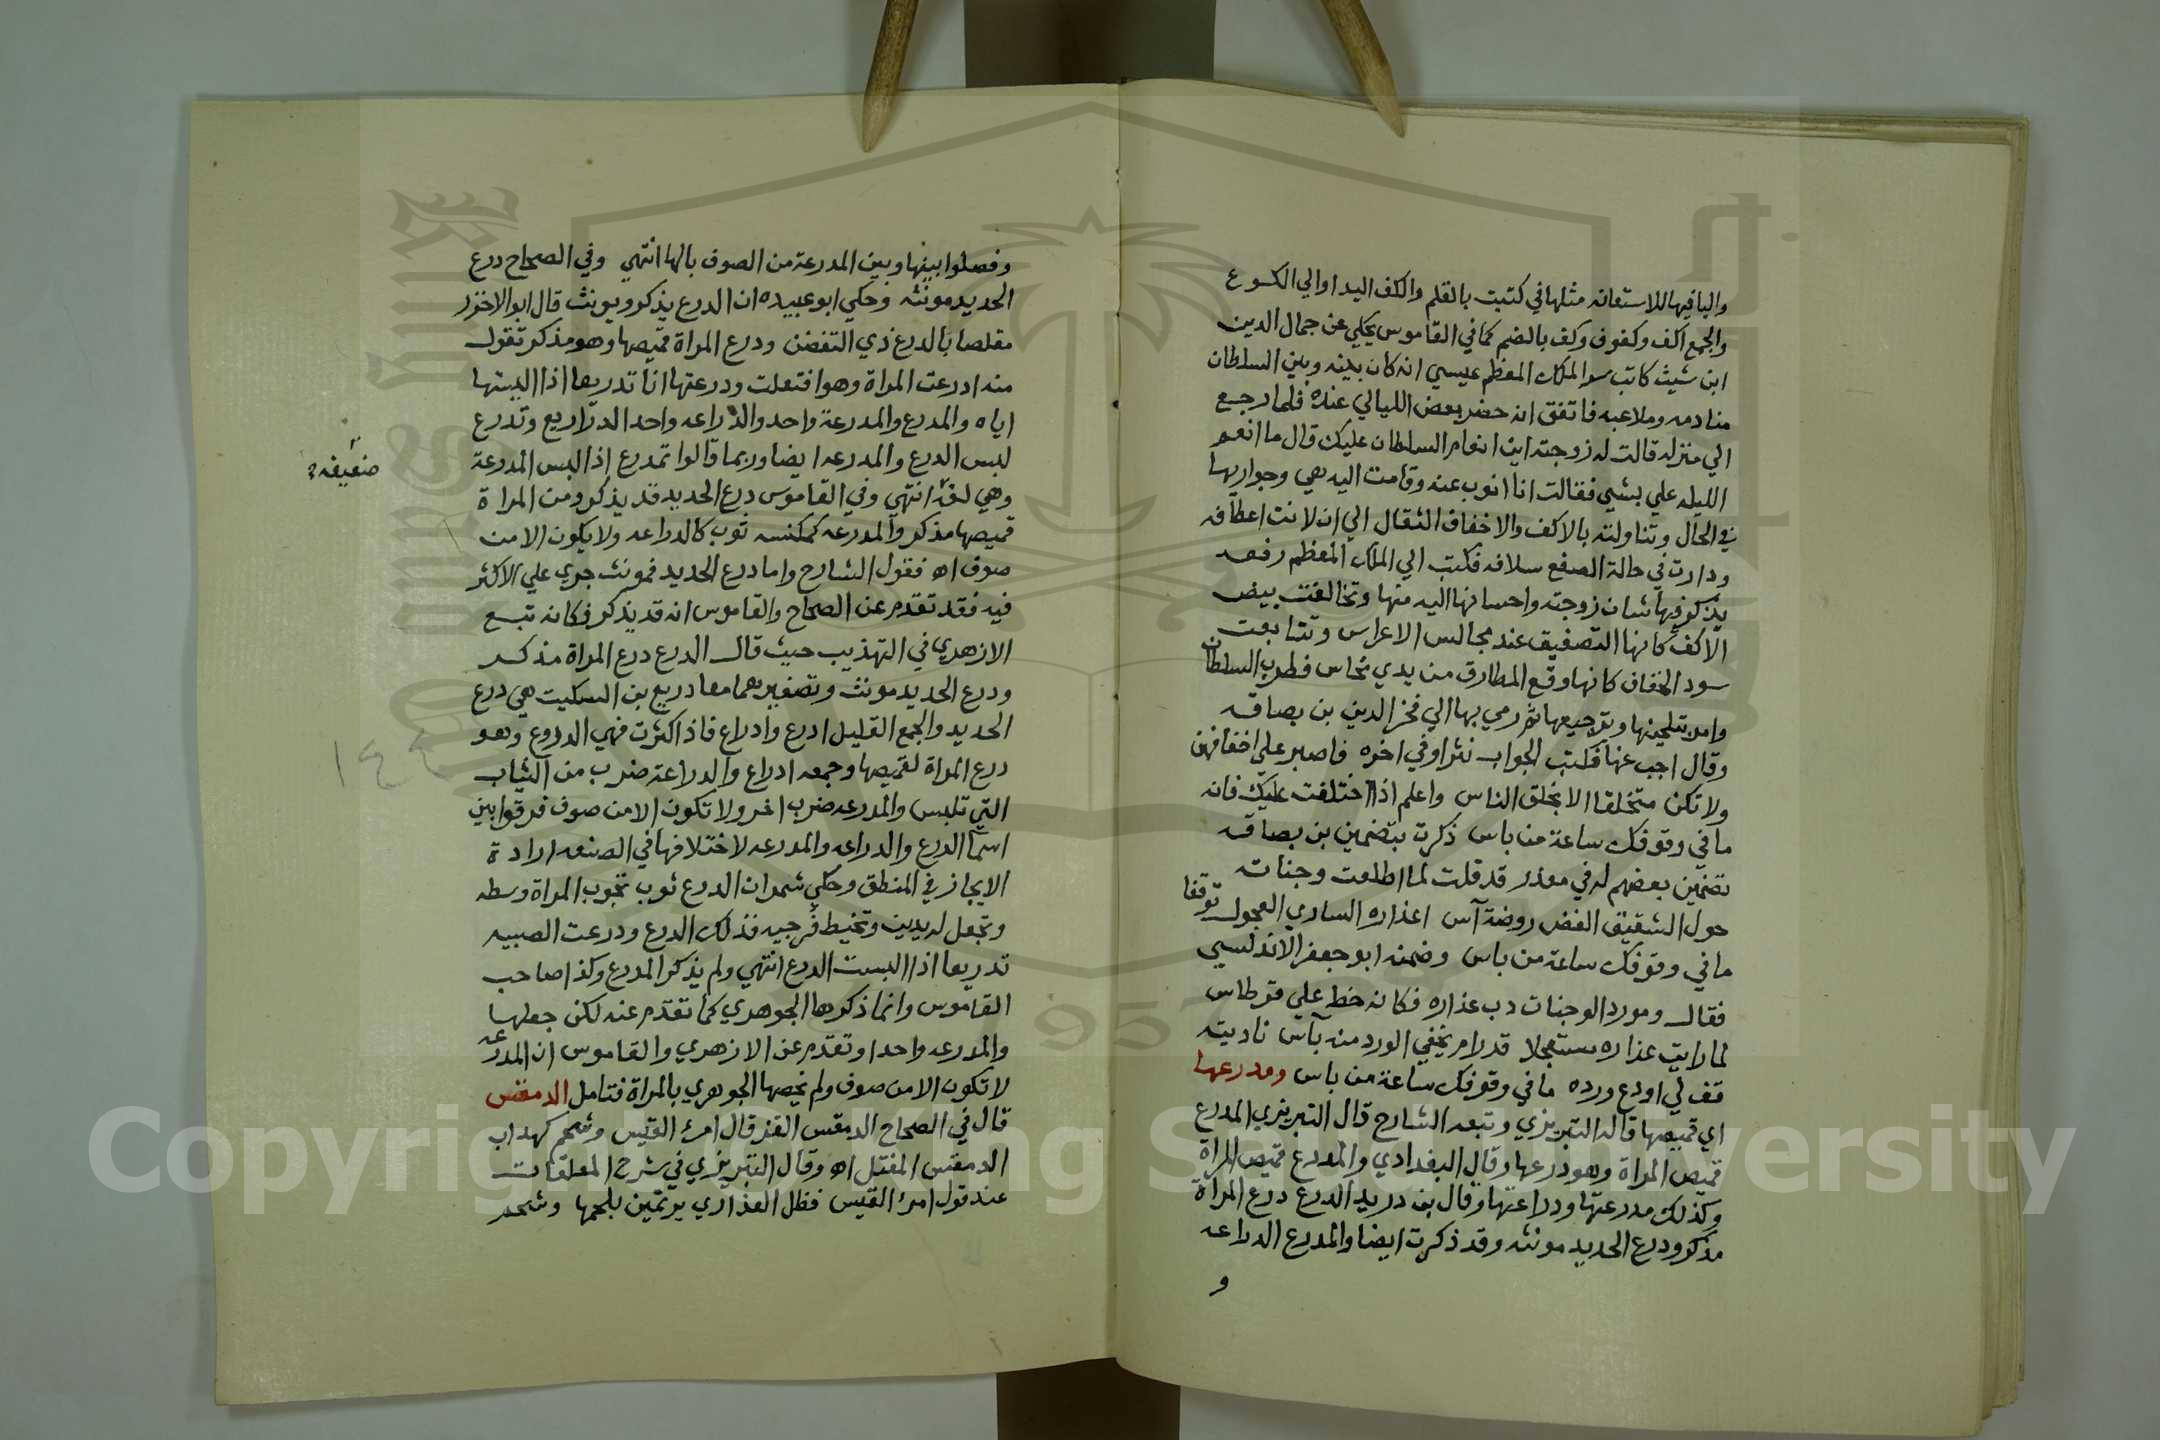 والبا فيها للاستعانه مثلها في كتبت بالقلم والكف اليد او الي الكوع
والجمع اكف وكفوف وكف بالضم كما في القاموس يحكي عن جمال الدين
ابن شيث كاتب سر الملك المعظم عيسي انه كان بينه وبين السلطان
منادمه وملاعبه فاتفق انه حضر بعض الليالي عنده فلما رجع
الي منزله قالت له زوجته اين انعام السلطان عليك قال ما انعم
الليله علي بشي فقالت انا انوب عنه وقامت اليه هي وجواريها
في الحال وتناولته بالاكف والاخفاف الثقال الي ان لانت اعطافه
ودارت في حالة الصفع سلافه فكتب الي الملك المعظم رقعه
يذكر فيها شان زوجته واحسانها اليه منها وتخالفت بيض
الاكف كانها التصفيق عند مجالس الاعراس وتتابعت
سود الخفاف كانها وقع المطارق من يدي نحاس فطرب السلطان
وامر بتلحينها وبترجيعها ثم رمي بها الي فخر الدين بن بصاقه
وقال اجب عنها فكتب الجواب نثرا وفي اخره فاصبر علي اخفافهن
ولا تكن متخلقا الا بخلق الناس واعلم اذا اختلفت عليك فانه
ما في وقوفك ساعة من باس ذكرت بتضمين بن بصاقه
تضمين بعضهم له في معذر قد قلت لما اطلعت وجناته
حول الشقيق الغض روضة آس اعذاره الساري العجول توقفا
ما في وقوفك ساعة من باس وضمنه ابو جعفر الاندلسي
فقال ومورد الوجنات دب عذاره فكانه خط علي قرطاس
لما رايت عذاره مستعجلا قد رام يخفي الورد منه بآس ناديته
قف لي اودع ورده ما في وقوفك ساعة من باس ومدرعها
اي قميصها قاله التبريزي وتبعه الشارح قال التبريزي المدرع
قميص المراة وهو درعها وقال البغدادي والمدرع قميص المراة
وكذلك مدرعتها ودراعتها وقال بن دريد الدرع درع المراة
مذكر ودرع الحديد مونثه وقد ذكرت ايضا والمدرع الدراعه
و
وفصلوا بينها وبين المدرعة من الصوف بالها انتهي وفي الصحاح درع
الحديد مونثه وحكي ابو عبيده ان الدرع يذكر ويونث قال ابو الاخزر
مقلصا بالدرع ذي التغضن ودرع المراة قميصها وهو مذكر تقول
منه ادرعت المراة وهو افتعلت ودرعتها انا تدريعا اذا البستها
اياه والمدرع والمدرعة واحد والدراعه واحد الدراريع وتدرع
لبس الدرع والمدرعه ايضا وربما قالوا تمدرع اذا لبس المدرعة
وهي لغة انتهي وفي القاموس درع الحديد قد يذكر ومن المراة
ضعيفه
قميصها مذكر والمدرعه كمكنسه ثوب كالدراعه ولا يكون الا من
صوف اه فقول الشارح واما درع الحديد فمونث جري علي الاكثر
فيه فقد تقدم عن الصحاح والقاموس انه قد يذكر فكانه تبع
الازهري في التهذيب حيث قال الدرع درع المراة مذكر
ودرع الحديد مونث وتصغيرهما معا دريع بن السكيت هي درع
الحديد والجمع القليل ادرع وادراع فاذا كثرت فهي الدروع وهو
درع المراة لقميصها وجمعه ادراع والدراعة ضرب من الثياب
التي تلبس والمدرعه ضرب اخر ولا تكون الا من صوف فرقوا بين
اسما الدرع والدراعه والمدرعه لاختلافها في الصنعه ارادة
الايجاز في المنطق وحكي شمر ان الدرع ثوب تجوب المراة وسطه
وتجعل له يدين وتخيط فرجيه فذلك الدرع ودرعت الصبيه
تدريعا اذا البست الدرع انتهي ولم يذكر المدرع وكذا صاحب
القاموس وانما ذكرها الجوهري كما تقدم عنه لكن جعلها
والمدرعه واحدا وتقدم عن الازهري والقاموس ان المدرعه
لا تكون الا من صوف ولم يخصها الجوهري بالمراة فتامل الدمقس
قال في الصحاح الدمقس القز قال امرئ القيس وشحم كهداب
الدمقس المفتل اه وقال التبريزي في شرح المعلقات
عند قول امرئ القيس فظل العذاري يرتمين بلحمها وشحم
١٤٤
Copyright © King Saud University
1957